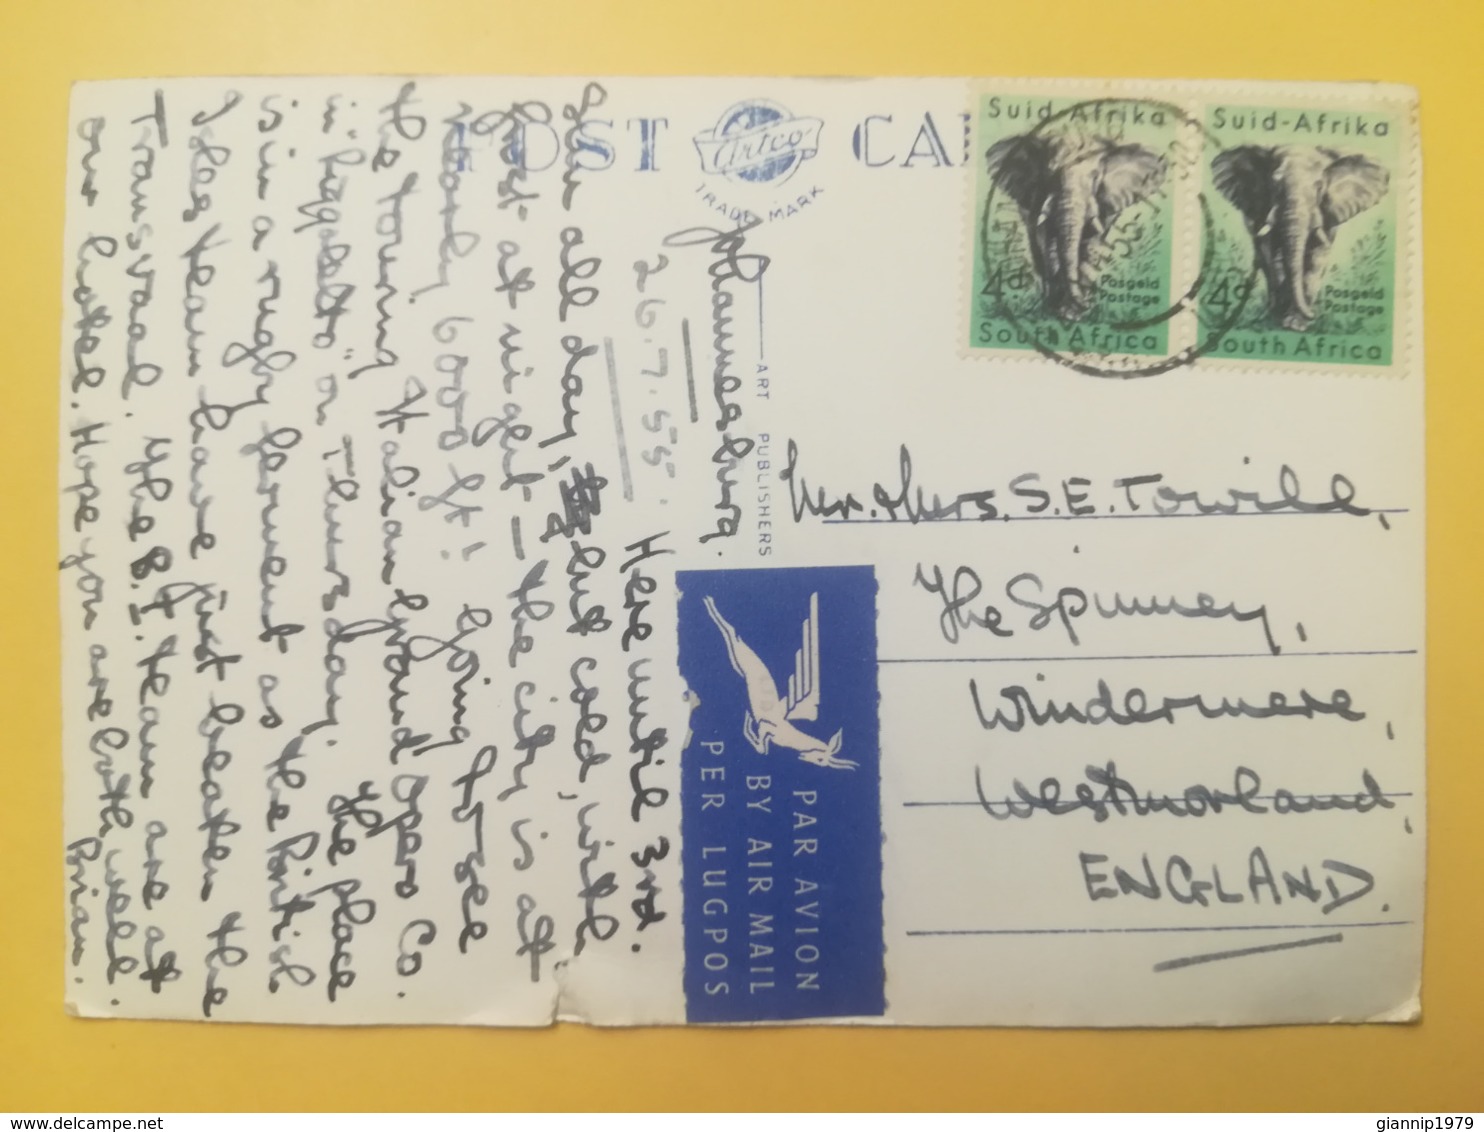 POST CAR
Artco
TRADE MARK
ART PUBLISHERS
Johannesburg.
26.7.55. Here until 3rd.
Sun all day, but cold, with
frost at night - the city is at
nearly 6000 ft! Going to see
the touring Italian Grand Opera Co.
in "Riggoletto" on Thursday. The place
is in a rugby ferment as the British
Isles team have just beaten the
Transvaal. The B.I. team are at
our hotel. Hope you are both well.
Brian.
Suid-Afrika
4d
Posgeld
Postage
South Africa
Suid-Afrika
4d
Posgeld
Postage
South Africa
Mr. & Mrs. S.E. Towill,
The Spinney,
Windermere,
Westmorland,
ENGLAND.
PAR AVION
BY AIR MAIL
PER LUGPOS
giannip1979